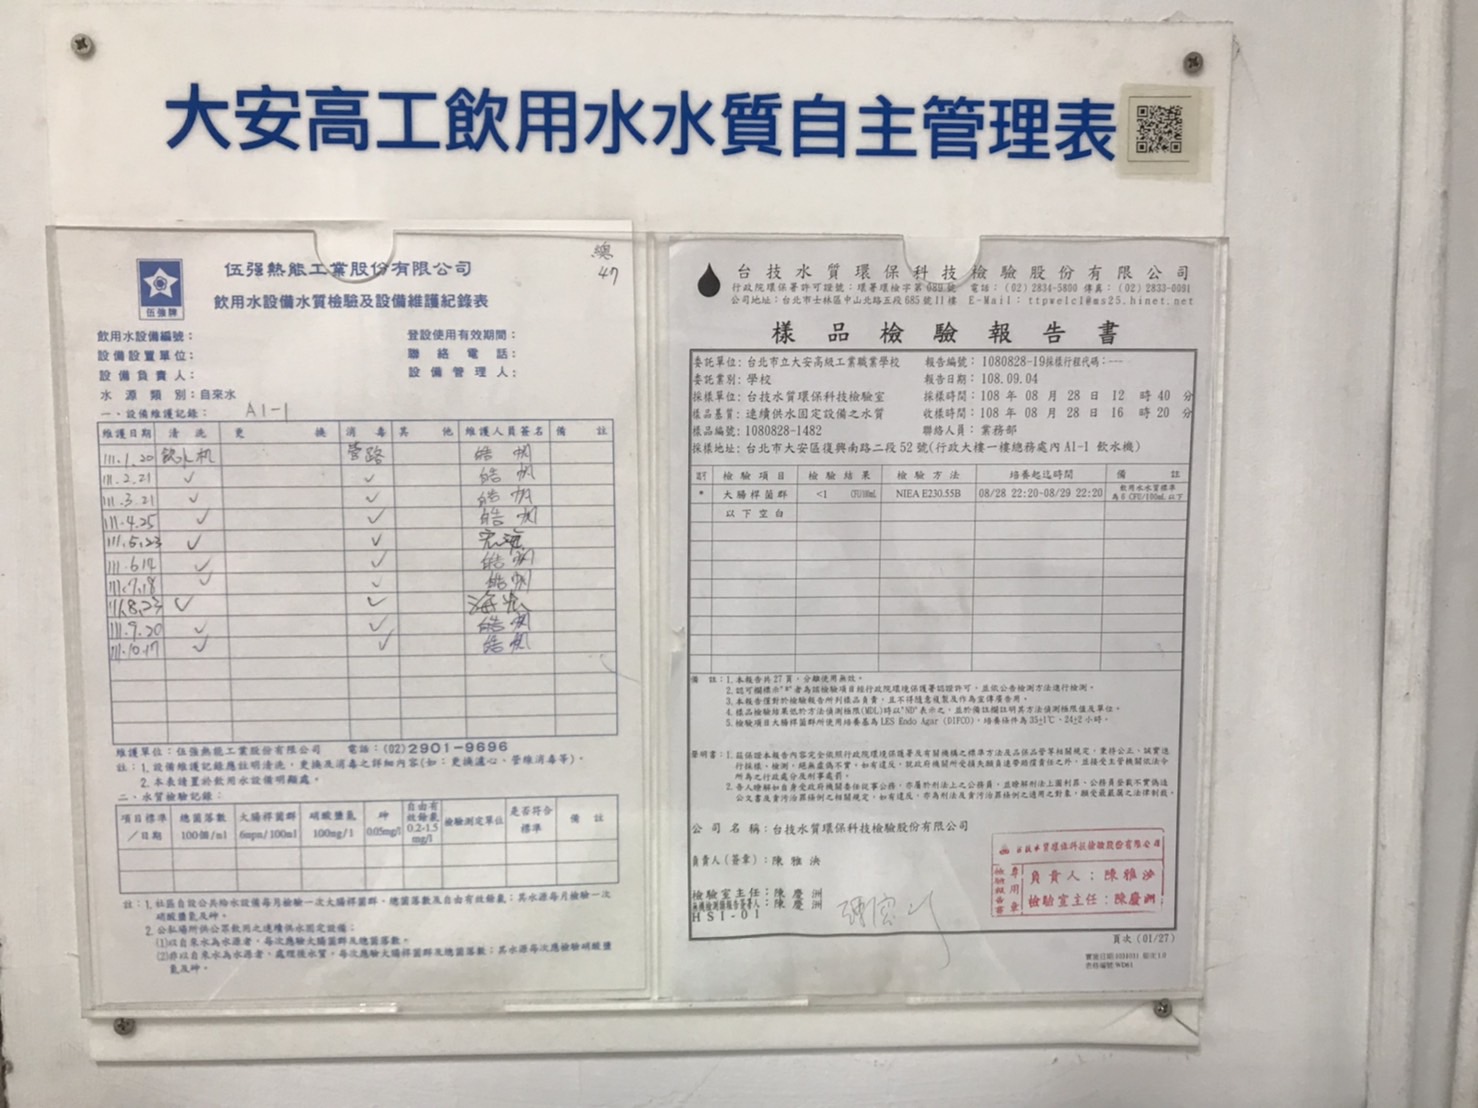 大安高工飲用水水質自主管理表
總
47
伍強牌
伍强熱能工業股份有限公司
飲用水設備水質檢驗及設備維護紀錄表
飲用水設備編號：
登設使用有效期間：
設備設置單位：
聯絡電話：
設備負責人：
設備管理人：
水源類別：自來水
一、設備維護記錄： A1-1
維護日期 清洗 更換 消毒 其他 維護人員簽名 備註
111.1.20 飲水机 管路 皓
111.2.21 ✓ ✓ 皓
111.3.21 ✓ ✓ 皓
111.4.25 ✓ ✓ 皓
111.5.23 ✓ ✓
111.6.14 ✓ ✓ 皓
111.7.18 ✓ ✓ 皓
111.8.23 ✓ ✓
111.9.20 ✓ ✓ 皓
111.10.17 ✓ ✓ 皓
維護單位：伍强熱能工業股份有限公司 電話：(02)2901-9696
註：1.設備維護記錄應註明清洗，更換及消毒之詳細內容(如：更換濾心、管維消毒等)。
2.本表請置於飲用水設備明顯處。
二、水質檢驗記錄：
項目標準／日期 總菌落數 100個/ml 大腸桿菌群 6mpn/100ml 硝酸鹽氮 100mg/l 砷 0.05mg/l 自由有效餘氯 0.2-1.5 mg/l 檢驗測定單位 是否符合標準 備註
註：1.社區自設公共給水設備每月檢驗一次大腸桿菌群、總菌落數及自由有效餘氯；其水源每月檢驗一次
硝酸鹽氮及砷。
2.公私場所供公眾飲用之連續供水固定設備：
(1)以自來水為水源者，每次應驗大腸桿菌群及總菌落數。
(2)非以自來水為水源者，處理後水質，每次應驗大腸桿菌群及總菌落數；其水源每次應檢驗硝酸鹽
氮及砷。
台技水質環保科技檢驗股份有限公司
行政院環保署許可證號：環署環檢字第089號 電話：(02)2834-5800 傳真：(02)2833-0091
公司地址：台北市士林區中山北路五段685號11樓 E-Mail：ttpwelcl@ms25.hinet.net
樣品檢驗報告書
委託單位：台北市立大安高級工業職業學校 報告編號：1080828-19採樣行程代碼：---
委託業別：學校 報告日期：108.09.04
採樣單位：台技水質環保科技檢驗室 採樣時間：108 年 08 月 28 日 12 時 40 分
樣品基質：連續供水固定設備之水質 收樣時間：108 年 08 月 28 日 16 時 20 分
樣品編號：1080828-1482 聯絡人員：業務部
採樣地址：台北市大安區復興南路二段52號(行政大樓一樓總務處內A1-1 飲水機)
許可 檢驗項目 檢驗結果 檢驗方法 培養起迄時間 備註
* 大腸桿菌群 <1 CFU/100mL NIEA E230.55B 08/28 22:20~08/29 22:20 飲用水水質標準為6 CFU/100mL以下
以下空白
備註：1.本報告共27頁，分離使用無效。
2.認可欄標示"*"者為該檢驗項目經行政院環境保護署認證許可，並依公告檢測方法進行檢測。
3.本報告僅對於檢驗報告所列樣品負責，且不得隨意複製及作為宣傳廣告用。
4.樣品檢驗結果低於方法偵測極限(MDL)時以"ND"表示之，並於備註欄註明其方法偵測極限值及單位。
5.檢驗項目大腸桿菌群所使用培養基為LES Endo Agar (DIFCO)，培養條件為35±1℃、24±2小時。
聲明書：1.茲保證本報告內容完全依照行政院環境保護署及有關機構之標準方法及品保品管等相關規定，秉持公正、誠實進
行採樣、檢測。絕無虛偽不實，如有違反，就政府機關所受損失願負連帶賠償責任之外，並接受主管機關依法令
所為之行政處分及刑事處罰。
2.吾人瞭解如自身受政府機關委任從事公務，亦屬於刑法上之公務員，並瞭解刑法上圖利罪、公務員登載不實偽造
公文書及貪污治罪條例之相關規定，如有違反，亦為刑法及貪污治罪條例之適用之對象，願受最嚴厲之法律制裁。
公司名稱：台技水質環保科技檢驗股份有限公司
負責人(簽章)：陳雅泱
檢驗室主任：陳慶洲
無機檢測類報告簽署人：陳慶洲
HSI-01
台技水質環保科技檢驗股份有限公司
檢驗報告書專用章
負責人：陳雅泱
檢驗室主任：陳慶洲
頁次(01/27)